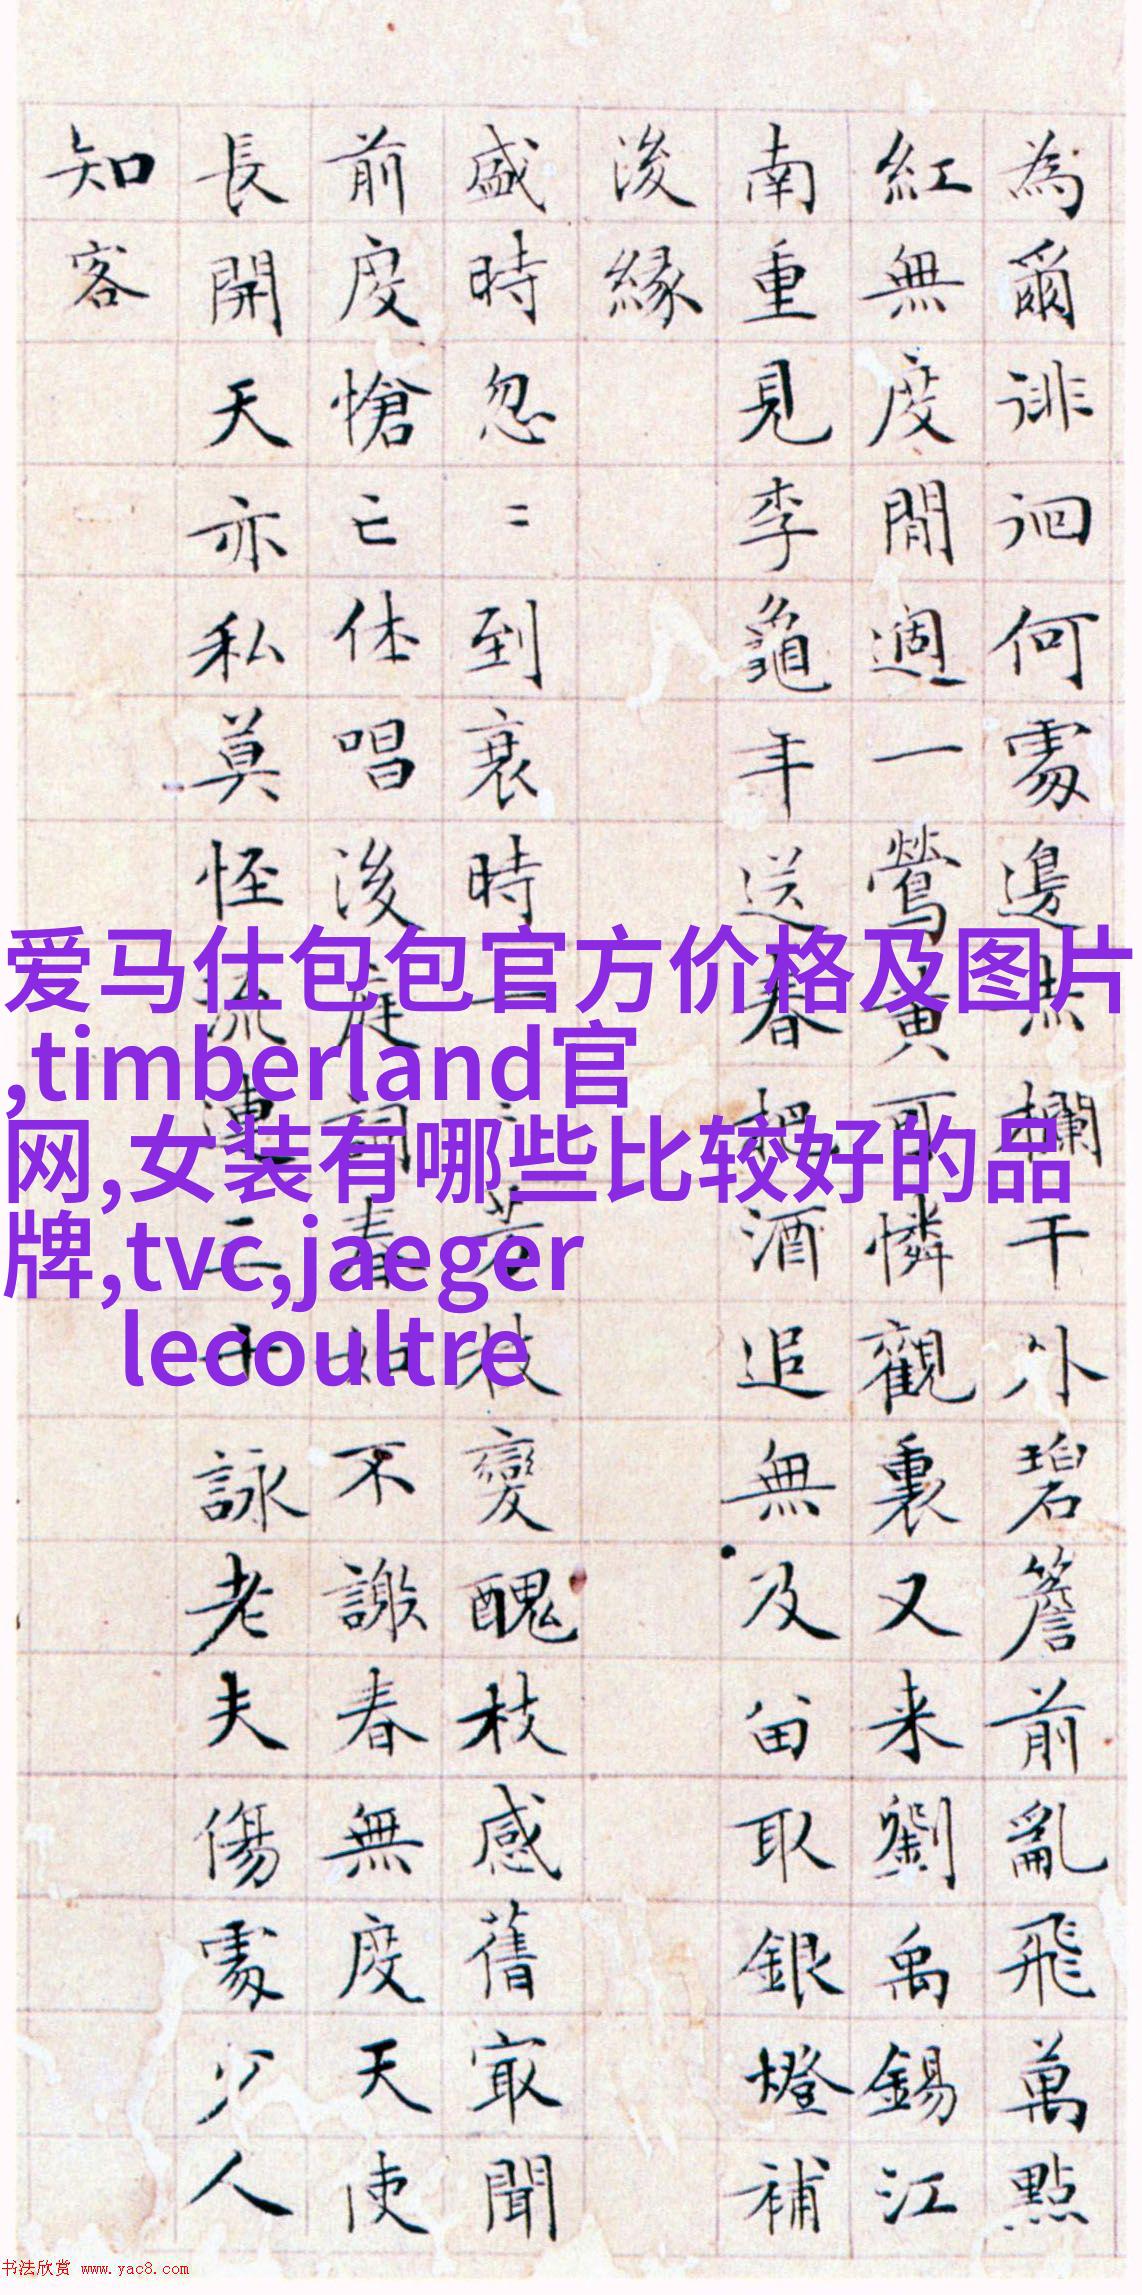 為爾徘徊何處邊赤欄干外碧簷前亂飛萬點
紅無度閒過一鶯黃可憐觀裏又来劉禹錫江
南重見李龜年送春把酒追無及留取銀燈補
後緣
盛時忽〻到衰時一〻芳枝變醜枝感舊最聞
前度愴亡休唱後庭詞春如不謝春無度天使
長開天亦私莫怪流連三十詠老夫傷處少人
知客
爱马仕包包官方价格及图片
,timberland官
网,女装有哪些比较好的品
牌,tvc,jaeger
lecoultre
书法欣赏 www.yac8.com